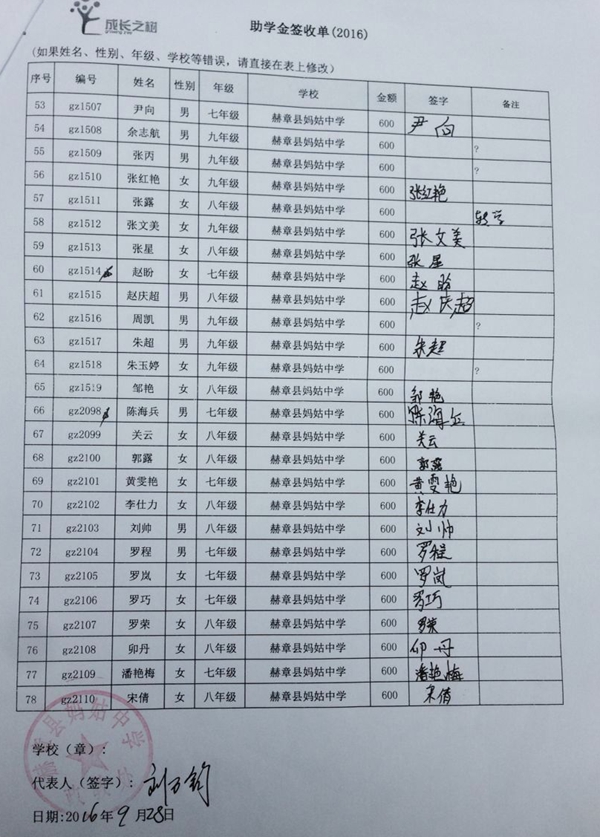 成长之梯
助学金签收单(2016)
(如果姓名、性别、年级、学校等错误，请直接在表上修改)
序号 编号 姓名 性别 年级 学校 金额 签字 备注
53 gz1507 尹向 男 七年级 赫章县妈姑中学 600 尹向
54 gz1508 余志航 男 九年级 赫章县妈姑中学 600 ?
55 gz1509 张丙 男 九年级 赫章县妈姑中学 600 ?
56 gz1510 张红艳 女 九年级 赫章县妈姑中学 600 张红艳
57 gz1511 张露 女 八年级 赫章县妈姑中学 600 转学
58 gz1512 张文美 女 九年级 赫章县妈姑中学 600 张文美
59 gz1513 张星 女 八年级 赫章县妈姑中学 600 张星
60 gz1514 赵盼 女 七年级 赫章县妈姑中学 600 赵盼
61 gz1515 赵庆超 男 八年级 赫章县妈姑中学 600 赵庆超
62 gz1516 周凯 男 九年级 赫章县妈姑中学 600 ?
63 gz1517 朱超 男 九年级 赫章县妈姑中学 600 朱超
64 gz1518 朱玉婷 女 九年级 赫章县妈姑中学 600 ?
65 gz1519 邹艳 女 八年级 赫章县妈姑中学 600 邹艳
66 gz2098 陈海兵 男 七年级 赫章县妈姑中学 600 陈海兵
67 gz2099 关云 女 八年级 赫章县妈姑中学 600 关云
68 gz2100 郭露 女 八年级 赫章县妈姑中学 600 郭露
69 gz2101 黄雯艳 女 七年级 赫章县妈姑中学 600 黄雯艳
70 gz2102 李仕力 女 八年级 赫章县妈姑中学 600 李仕力
71 gz2103 刘帅 男 八年级 赫章县妈姑中学 600 刘帅
72 gz2104 罗程 男 七年级 赫章县妈姑中学 600 罗程
73 gz2105 罗岚 女 七年级 赫章县妈姑中学 600 罗岚
74 gz2106 罗巧 女 七年级 赫章县妈姑中学 600 罗巧
75 gz2107 罗荣 女 八年级 赫章县妈姑中学 600 罗荣
76 gz2108 卯丹 女 八年级 赫章县妈姑中学 600 卯丹
77 gz2109 潘艳梅 女 七年级 赫章县妈姑中学 600 潘艳梅
78 gz2110 宋倩 女 八年级 赫章县妈姑中学 600 宋倩
学校（章）:
代表人（签字）: 刘万钧
日期:2016年9月28日